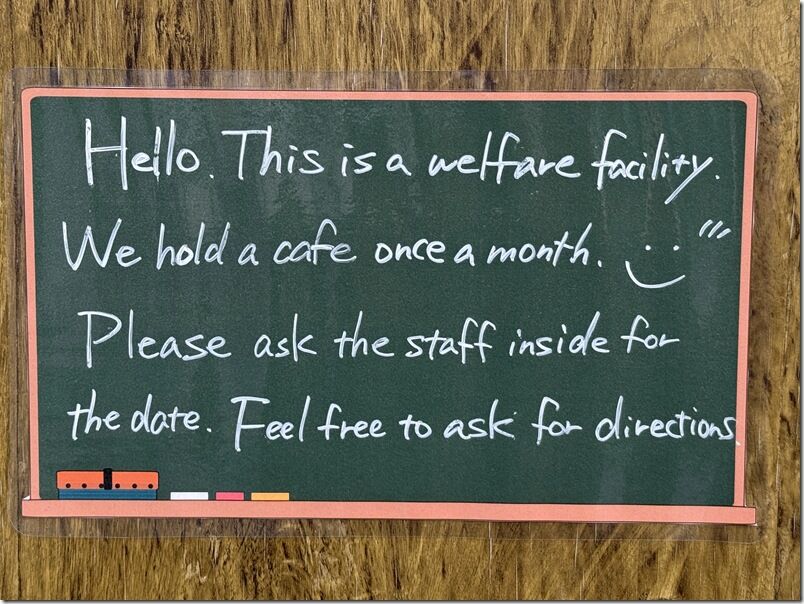 Hello. This is a welfare facility.
We hold a cafe once a month.
Please ask the staff inside for
the date. Feel free to ask for directions.